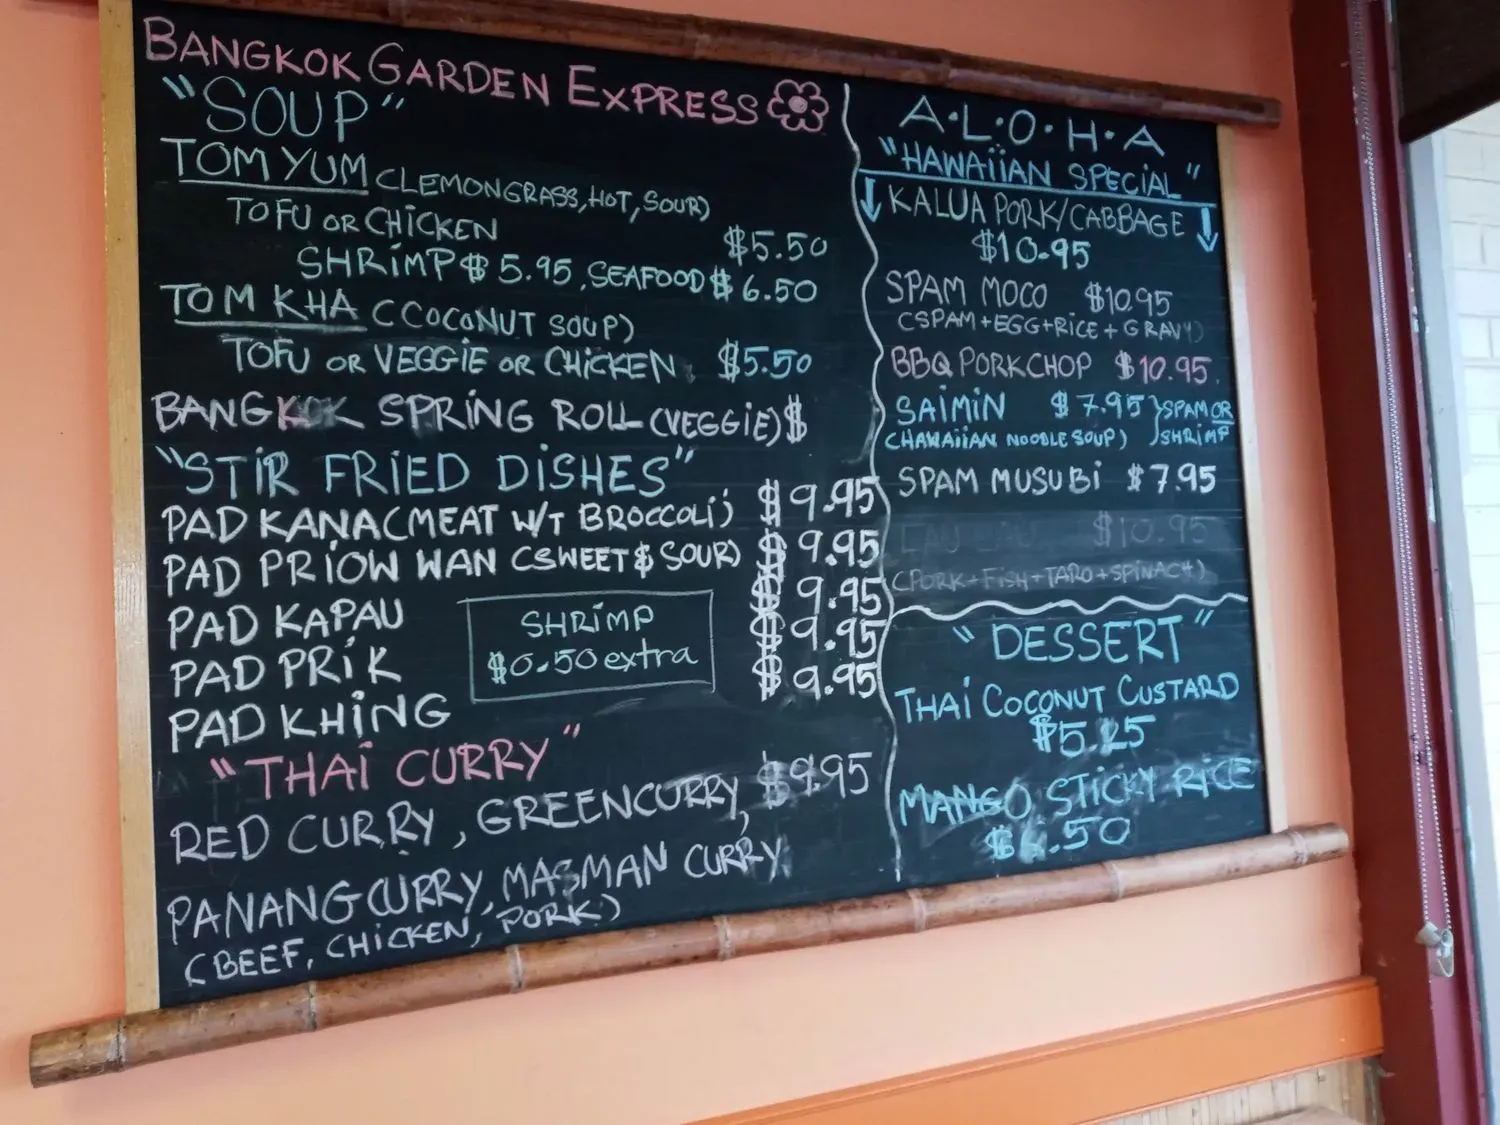 BANGKOK GARDEN EXPRESS
"SOUP"
TOM YUM (LEMONGRASS, HOT, SOUR)
TOFU OR CHICKEN $5.50
SHRIMP $5.95, SEAFOOD $6.50
TOM KHA (COCONUT SOUP)
TOFU OR VEGGIE OR CHICKEN $5.50
BANGKOK SPRING ROLL (VEGGIE) $
"STIR FRIED DISHES"
PAD KANA (MEAT W/T BROCCOLI) $9.95
PAD PRIOW WAN (SWEET & SOUR) $9.95
PAD KAPAU $9.95
PAD PRIK $9.95
PAD KHING $9.95
SHRIMP
$0.50 extra
"THAI CURRY"
RED CURRY, GREEN CURRY, $9.95
PANANG CURRY, MASMAN CURRY
(BEEF, CHICKEN, PORK)
A·L·O·H·A
"HAWAIIAN SPECIAL"
KALUA PORK/CABBAGE
$10.95
SPAM MOCO $10.95
(SPAM+EGG+RICE+GRAVY)
BBQ PORKCHOP $10.95
SAIMIN $7.95 }SPAM OR
(HAWAIIAN NOODLE SOUP) SHRIMP
SPAM MUSUBI $7.95
$10.95
(PORK+FISH+TARO+SPINACH)
"DESSERT"
THAI COCONUT CUSTARD
$5.25
MANGO STICKY RICE
.50